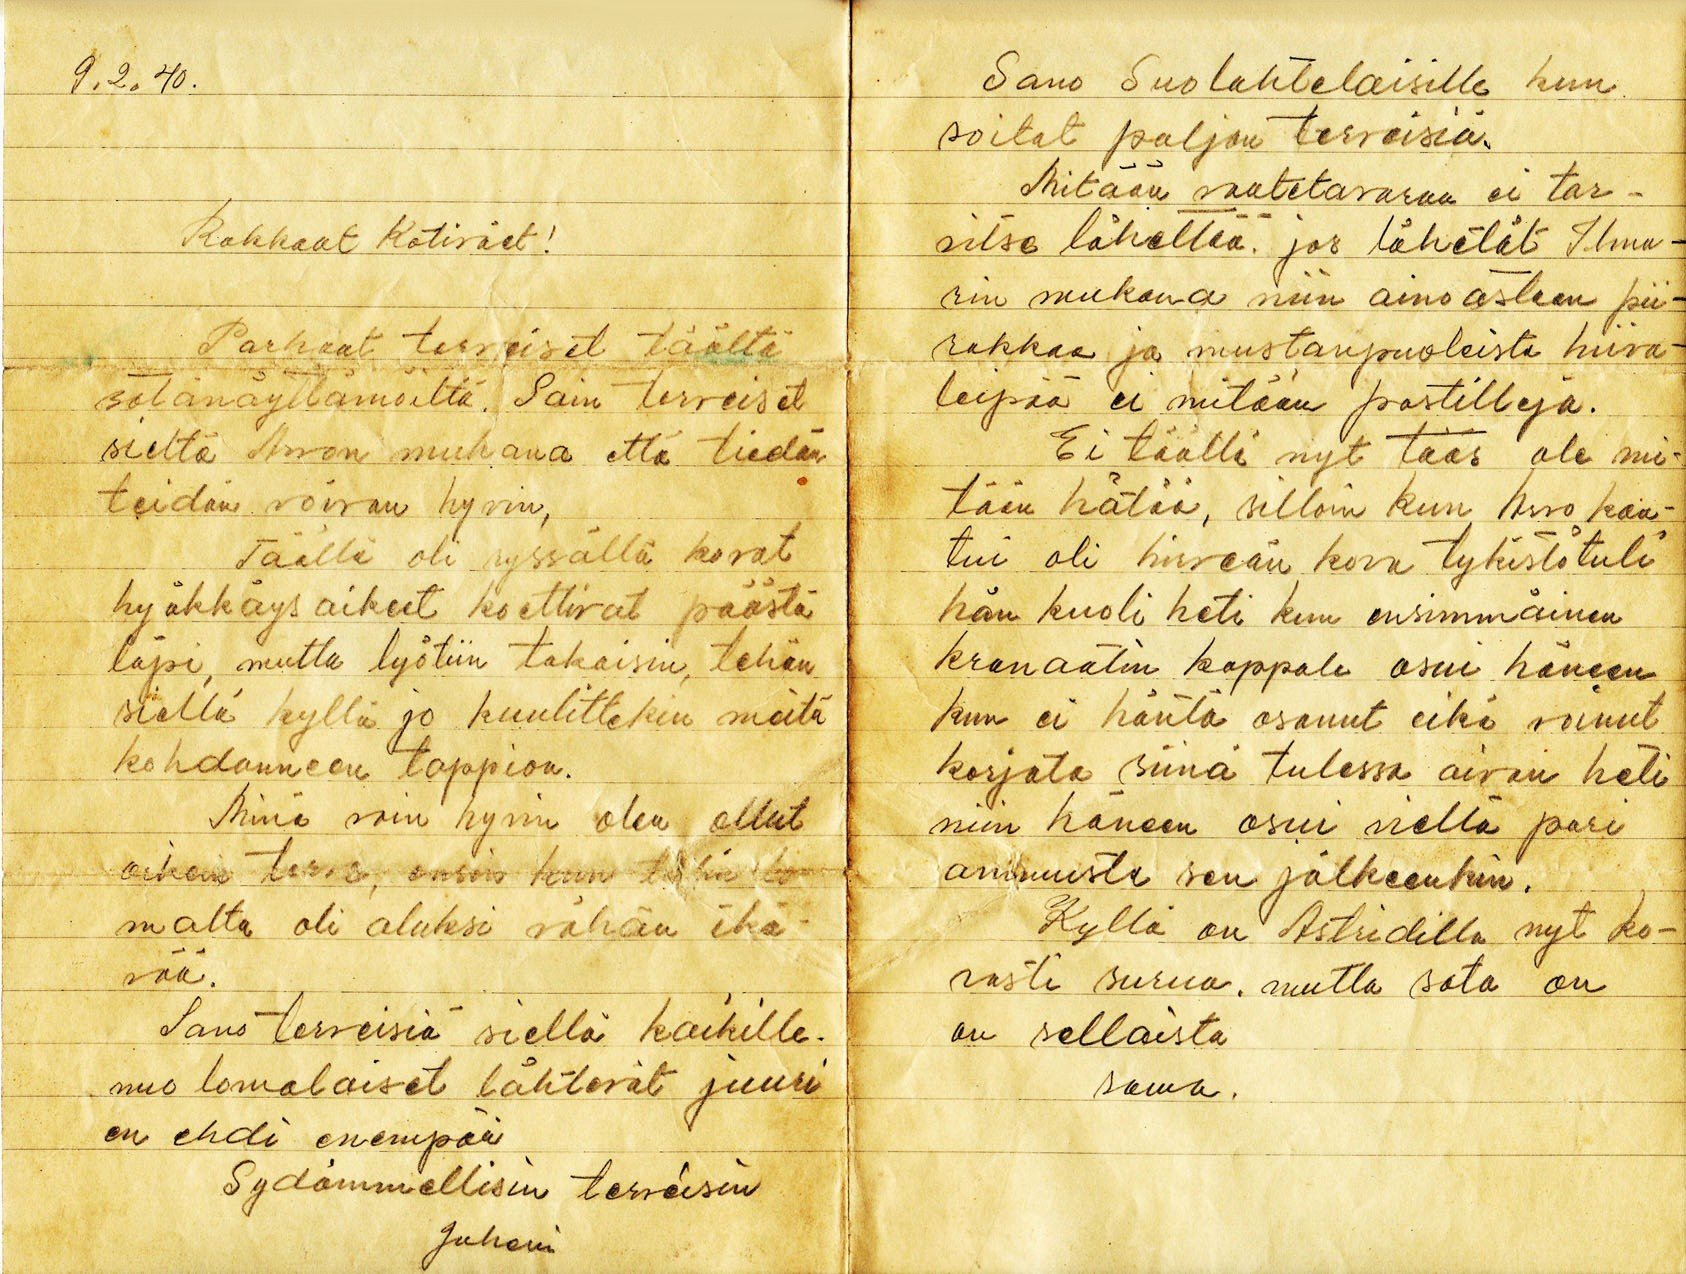 9.2.40.
Rakkaat Kotiväet!
Parhaat terveiset täältä
sotanäyttämöiltä. Sain terveiset
sieltä Arvon mukana että tiedän
teidän voivan hyvin,
Täällä oli ryssällä kovat
hyökkäys aikeet koettivat päästä
läpi, mutta lyötiin takaisin, tehän
siellä kyllä jo kuulittekin meitä
kohdanneen tappion.
Minä voin hyvin olen ollut
oikein terve, ensin kun tulin lo-
malta oli aluksi vähän ikä-
vää.
Sano terveisiä siellä kaikille.
nuo lomalaiset lähtevät juuri
en ehdi enempää
Sydämmellisin terveisin
Juhani
Sano Suolahtelaisille kun
soitat paljon terveisiä.
Mitään vaatetavaraa ei tar-
vitse lähettää. jos lähetät Ilma-
rin mukana niin ainoastaan pii-
rakkaa ja mustanpuoleista hiiva-
leipää ei mitään pastilleja.
Ei täällä nyt taas ole mi-
tään hätää, silloin kun Arvo kaa-
tui oli hirveän kova tykistötuli
hän kuoli heti kun ensimmäinen
kranaatin kappale osui häneen
kun ei häntä osanut eikä voinut
korjata siinä tulessa aivan heti
niin häneen osui vieltä pari
ammusta sen jälkeenkin.
Kyllä on Astridilla nyt ko-
vasti surua. mutta sota on
on sellaista
sama.